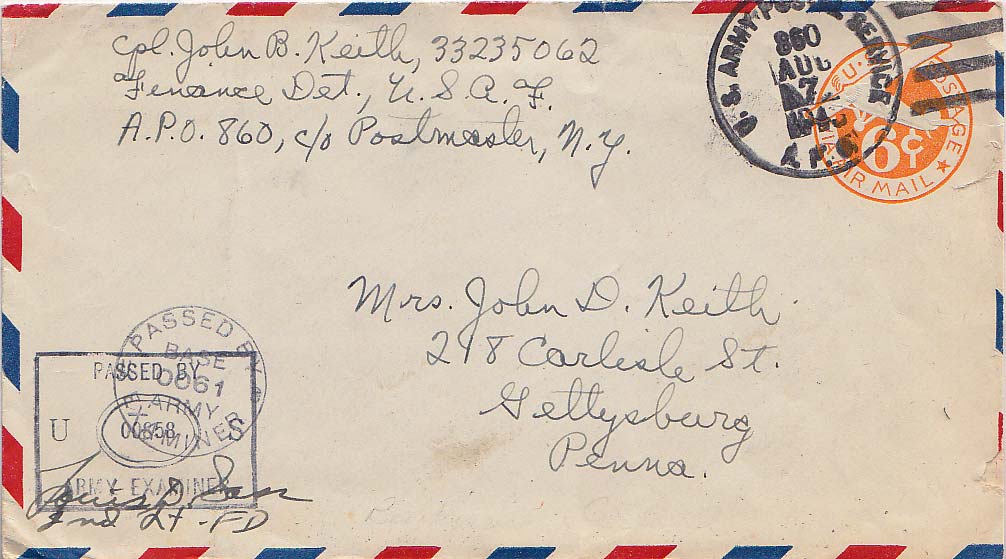 Cpl. John B. Keith, 33235062
Finance Det., U. S. A. F.
A.P.O. 860, c/o Postmaster, N.Y.
U.S. ARMY POSTAL SERVICE
860
AUG
7
A.P.O.
U.S. POSTAGE
6¢
VIA AIR MAIL
Mrs. John D. Keith
218 Carlisle St.
Gettysburg
Penna.
PASSED BY
BASE
0061
ARMY
EXAMINER
PASSED BY
U S
00858
ARMY EXAMINER
Louis D.
2nd Lt - FD